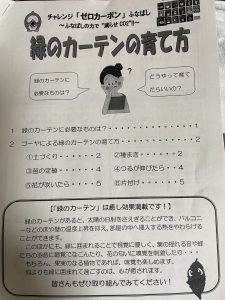 チャレンジ「ゼロカーボン」ふなばし
～ふなばしの力で"減らせCO2"!～
緑のカーテンの育て方
緑のカーテンに
必要なものは?
どうやって育て
たらいいの?
1 緑のカーテンに必要なものは?・・・・・・・・・・1
2 ゴーヤによる緑のカーテンの育て方・・・・・・・・2
①土づくり・・・・・・2
②種まき・・・・・・・2
③苗の定植・・・・・・4
④つるが伸びたら・・・4
⑤花が咲いたら・・・・5
⑥片付け・・・・・・・5
【「緑のカーテン」は癒し効果満載です!】
緑のカーテンがあると、太陽の日射をさえぎることができ、バルコニー
などの床や壁の温度上昇を抑え、部屋の中へ侵入する熱をやわらげる
ことができます。
このほかにも、緑に囲まれることで視覚に優しく、葉の揺れる音や緑
たちの会話に聴覚でなごんだり、花の匂いに嗅覚を刺激したり・・・
もちろん、果実のなる植物であれば、味覚も楽しめます。
何よりも緑に囲まれて過ごすのは、心が癒されます。
皆さんもぜひ取り組みてみてください!